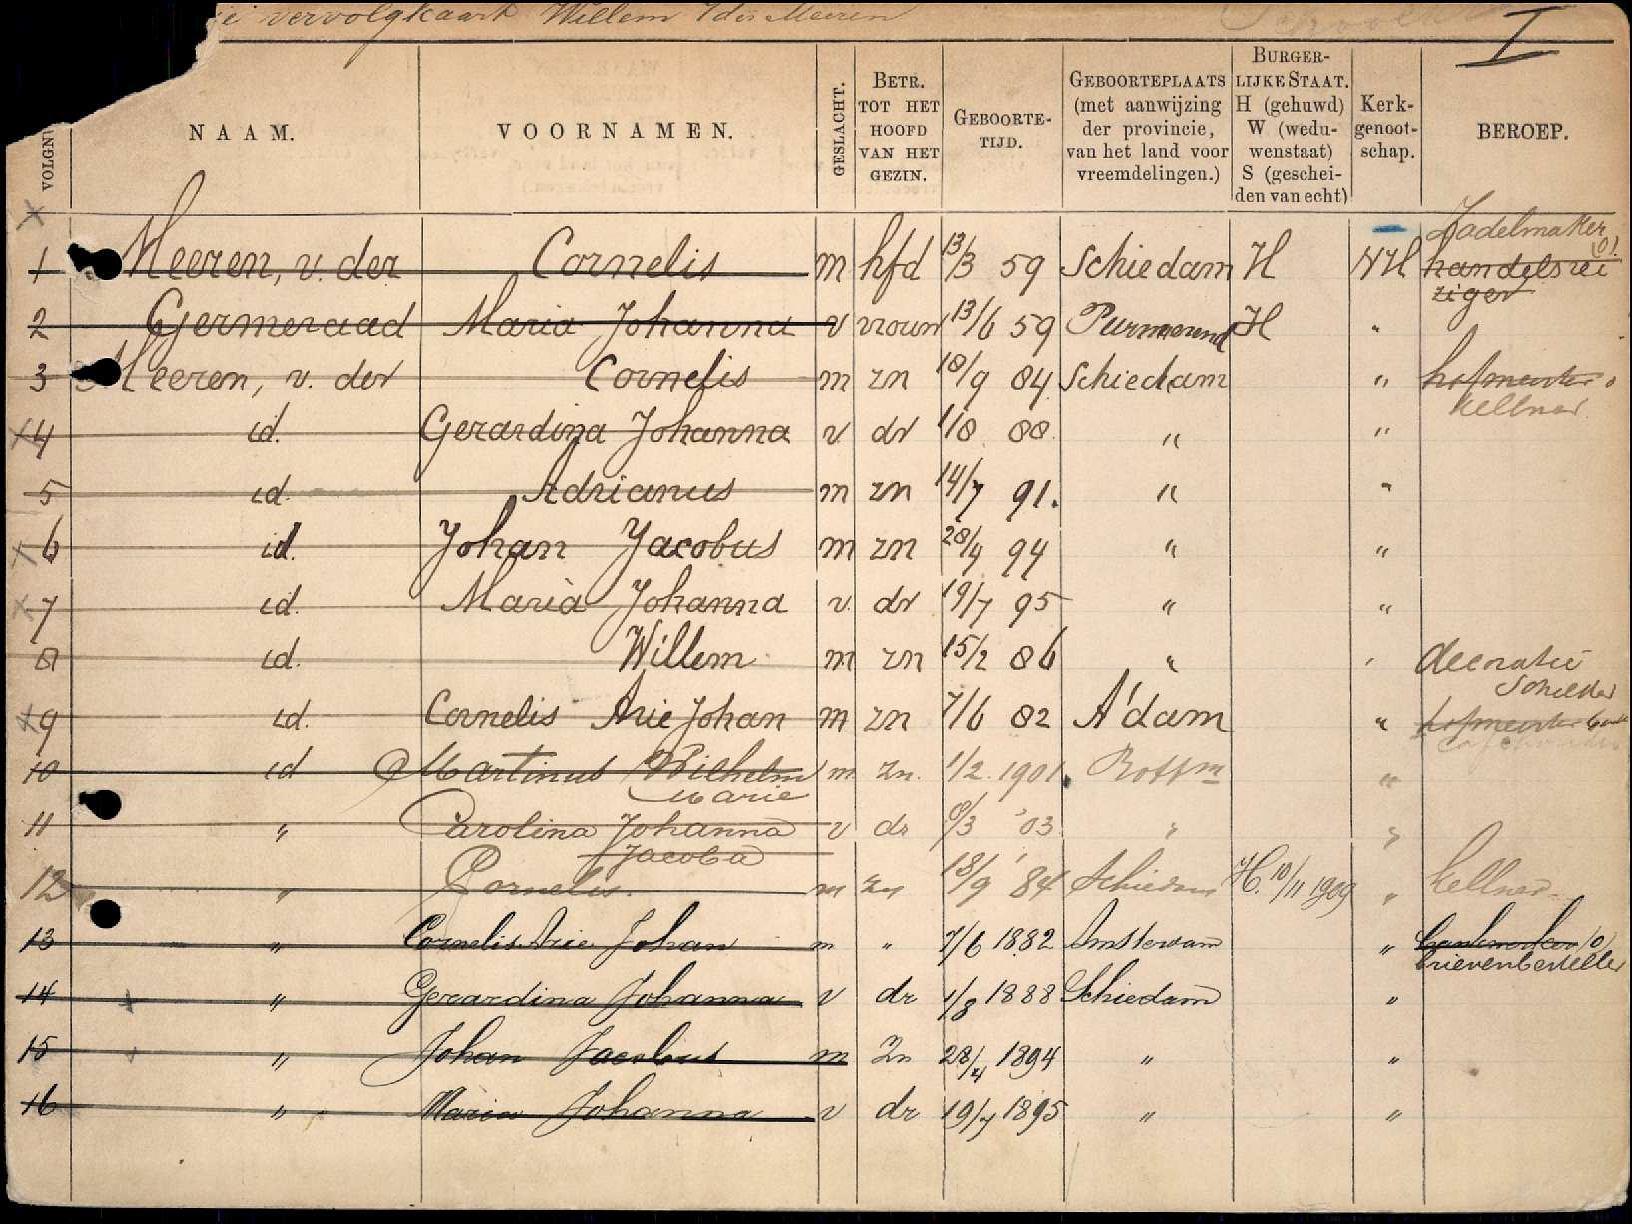 vervolgkaart Willem v der Meeren
I
VOLGN
NAAM.
VOORNAMEN.
GESLACHT.
BETR. TOT HET HOOFD VAN HET GEZIN.
GEBOORTE-TIJD.
GEBOORTEPLAATS (met aanwijzing der provincie, van het land voor vreemdelingen.)
BURGER-LIJKE STAAT. H (gehuwd) W (wedu-wenstaat) S (geschei-den van echt)
Kerk-genoot-schap.
BEROEP.
Zadelmaker
1 Meeren, v. der Cornelis m hfd 13/3 59 Schiedam H NH handelsrei
ziger
2 Germeraad Maria Johanna v vrouw 13/6 59 Purmerend H "
3 Meeren, v. der Cornelis m zn 18/9 84 Schiedam " hofmeester
kellner
4 id. Gerardina Johanna v dr 1/8 88 " "
5 id. Adrianus m zn 14/7 91. " "
6 id. Johan Jacobus m zn 28/4 94 " "
7 id. Maria Johanna v. dr 19/7 95 " "
8 id. Willem m zn 15/2 86 " " decoratie
schilder
9 id. Cornelis Arie Johan m zn 7/6 82 A'dam " hofmeester
10 id Martinus Wilhelm m zn. 1/2 1901. Rottm "
Marie
11 " Carolina Johanna v dr 6/3 '03 " "
Jacoba
12 " Cornelis. m zn 18/9 '84 Schiedam H. 10/11 1909 " kellner
13 " Cornelis Arie Johan m " 7/6 1882 Amsterdam "
brievenbesteller
14 " Gerardina Johanna v dr 1/8 1888 Schiedam "
15 " Johan Jacobus m Zn 28/4 1894 " "
16 " Maria Johanna v dr 19/7 1895 " "